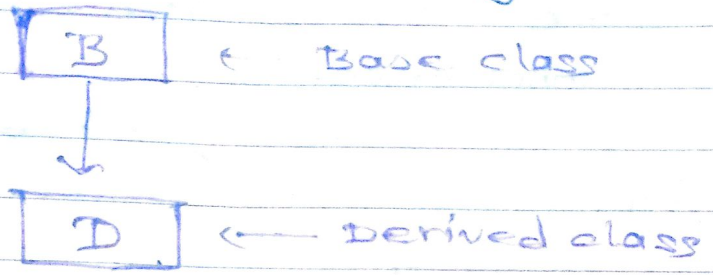 B ← Base class
D ← Derived class